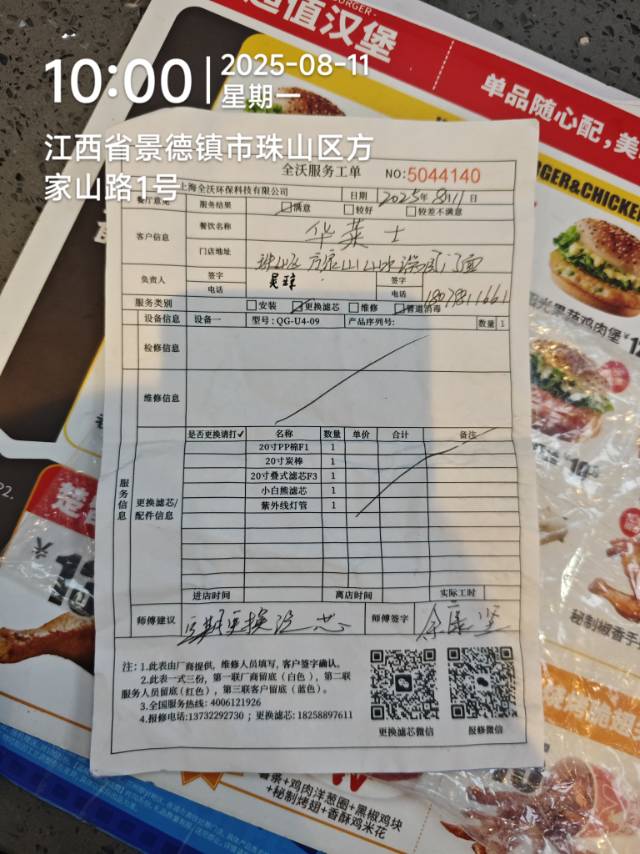 超值汉堡
单品随心配,美
10:00
2025-08-11
星期一
江西省景德镇市珠山区方
家山路1号
全沃服务工单 NO:5044140
上海全沃环保科技有限公司 日期 2025年8月11日
客户意见 服务结果 满意 较好 较差不满意
客户信息 餐饮名称 华莱士
门店地址
负责人 签字 签字
电话 电话
服务类别 安装 更换滤芯 维修 管道消毒
设备信息 设备一 型号:QG-U4-09 产品序列号: 数量 1
检修信息
维修信息
服务信息
更换滤芯/
配件信息
是否更换请打✓ 名称 数量 单价 合计 备注
20寸PP棉F1 1
20寸炭棒 1
20寸叠式滤芯F3 1
小白熊滤芯 1
紫外线灯管 1
进店时间 离店时间 实际工时
师傅建议 定期更换滤芯 师傅签字
注:1.此表由厂商提供,维修人员填写,客户签字确认。
2.此表一式三份,第一联厂商留底(白色),第二联
服务人员留底(红色),第三联客户留底(蓝色)。
3.全国服务热线:4006121926
4.报修电话:13732292730;更换滤芯:18258897611
更换滤芯微信 报修微信
BURGER&CHICKEN
秘制椒香手
薯条+鸡肉洋葱圈+黑椒鸡块
+秘制烤翅+香酥鸡米花